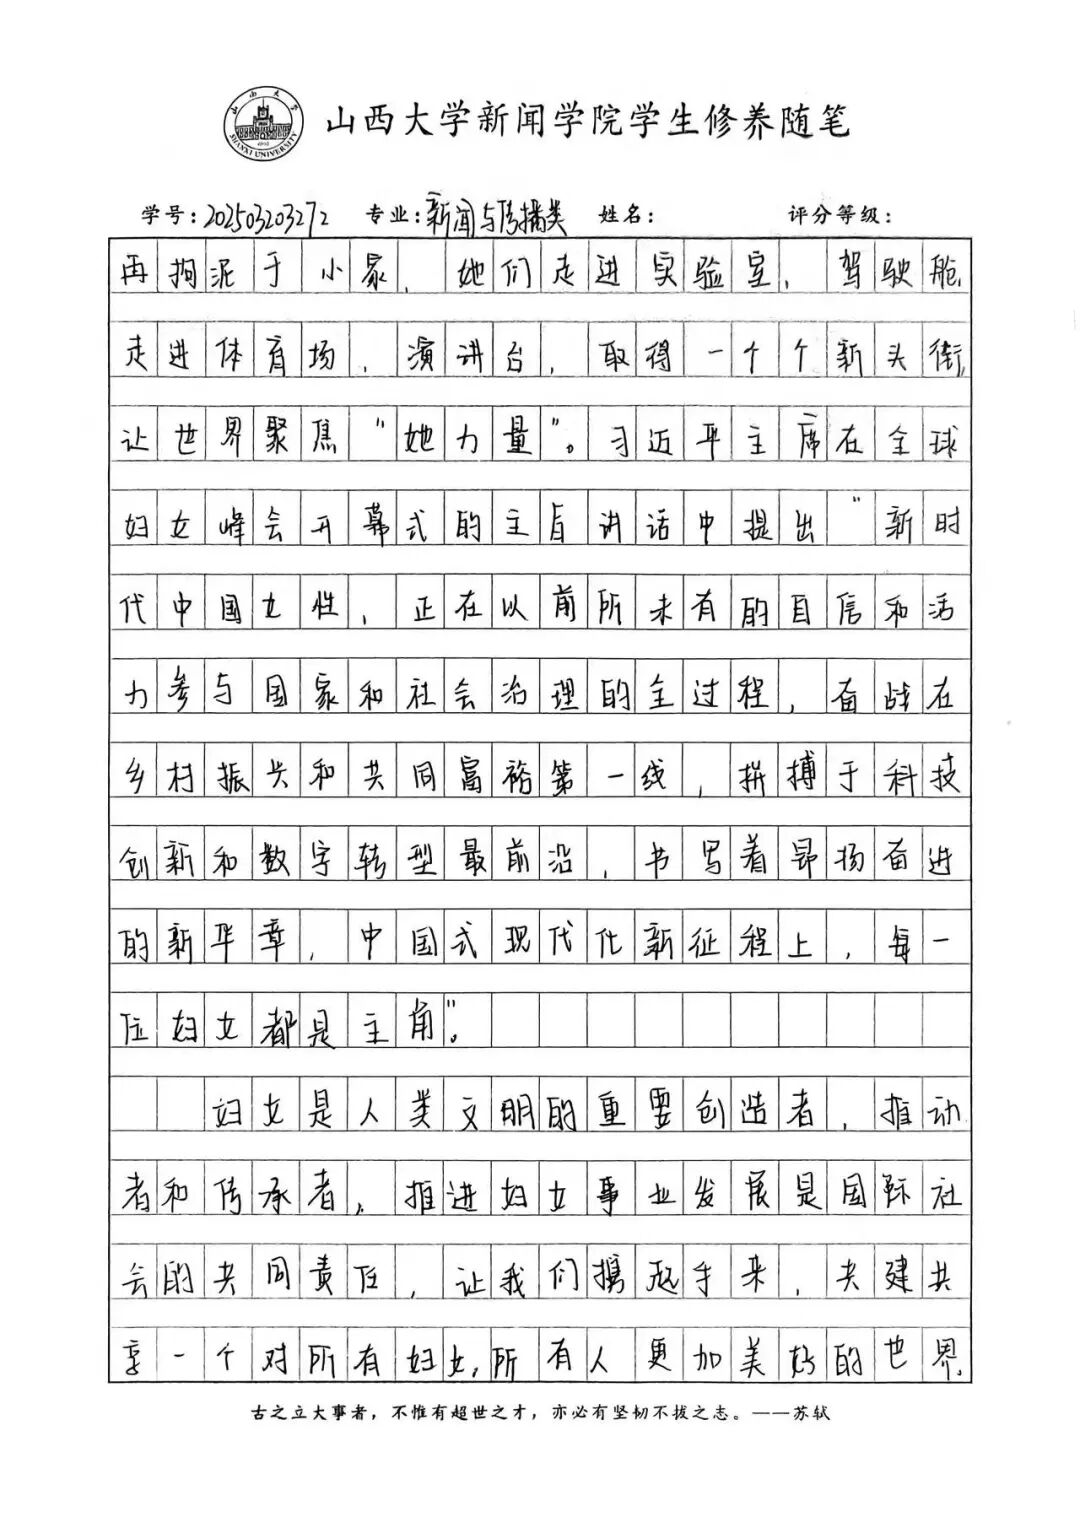 山西大学
SHANXI UNIVERSITY
1902
山西大学新闻学院学生修养随笔
学号:202503203272 专业:新闻与传播类 姓名: 评分等级:
再拘泥于小家,她们走进实验室,驾驶舱,
走进体育场,演讲台,取得一个个新头衔,
让世界聚焦“她力量”。习近平主席在全球
妇女峰会开幕式的主旨讲话中提出“新时
代中国女性,正在以前所未有的自信和活
力参与国家和社会治理的全过程,奋战在
乡村振兴和共同富裕第一线,拼搏于科技
创新和数字转型最前沿,书写着昂扬奋进
的新华章,中国式现代化新征程上,每一
位妇女都是主角”。
妇女是人类文明的重要创造者,推动
者和传承者,推进妇女事业发展是国际社
会的共同责任,让我们携起手来,共建共
享一个对所有妇女,所有人更加美好的世界。
古之立大事者,不惟有超世之才,亦必有坚韧不拔之志。——苏轼